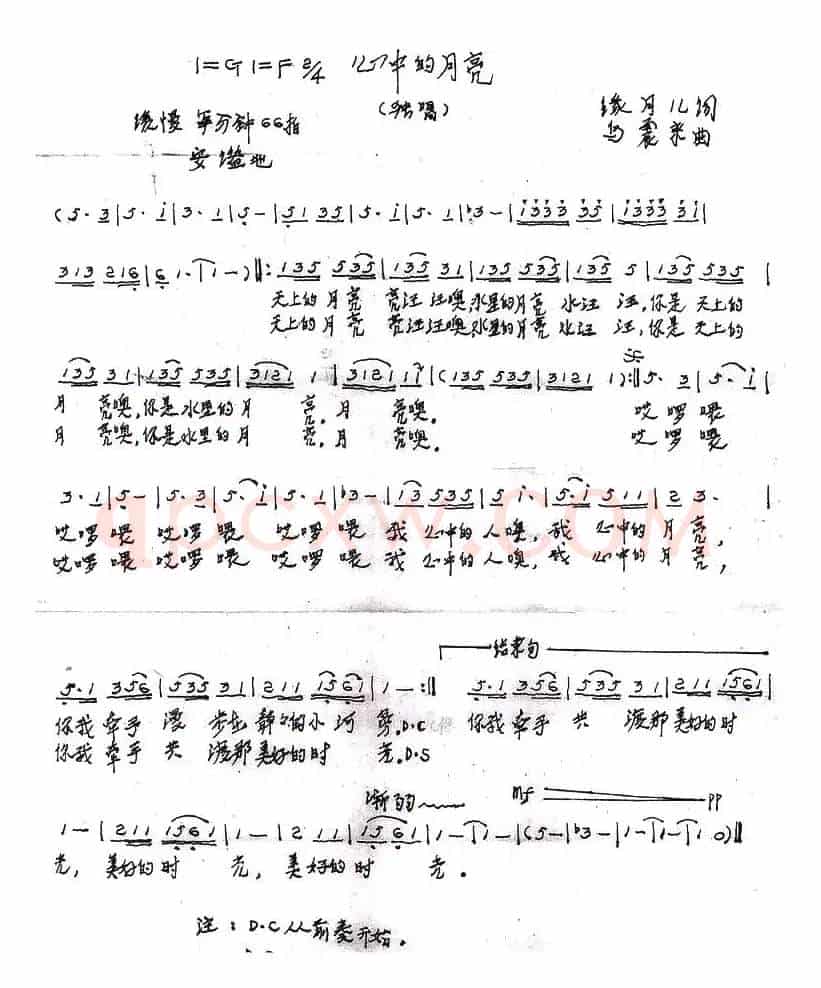 1=G 1=F 2/4 心中的月亮
(独唱)
缓慢 每分钟66拍
缘月儿词
乌震来曲
安谧地
(5· 3|5· i|3· 1|5 -|51 35|5· i|5· 1|♭3 -|1333 35|1333 31|
313 216|6 1·|1 -):‖:135 535|135 31|135 535|135 5|135 535|
天上的月亮 亮汪汪噢,水里的月亮 水汪汪,你是天上的
天上的月亮 亮汪汪噢,水里的月亮 水汪汪,你是天上的
135 31|135 535|3121 1|3121 11|(135 535|3121 1):‖5· 3|5· i|
月亮噢,你是水里的月亮。月亮噢。 哎啰喂
月亮噢,你是水里的月亮。月亮噢。 哎啰喂
3· 1|5 -|5· 3|5· i|5· 1|♭3 -|13 535|5 i·|5·i 511|2 3·|
qpcxw.COM
哎啰喂 哎啰喂 哎啰喂 我心中的人噢,我心中的月亮,
哎啰喂 哎啰喂 哎啰喂 我心中的人噢,我心中的月亮,
结束句
5·1 356|535 31|211 1561|1 -:‖ 5·1 356|535 31|211 1561|
你我牵手漫步在静静的小河旁.D.C 你我牵手共渡那美好的时
你我牵手共渡那美好的时光.D.S
渐弱 mf pp
1 -|211 1561|1 -|2 11|1561|1 -|1 -|(5 -|♭3 -|1 -|1 -|1 0)‖
光,美好的时光,美好的时光。
注:D.C从前奏开始。